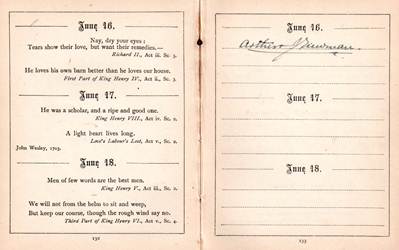 June 16.
Nay, dry your eyes;
Tears show their love, but want their remedies.—
Richard II., Act iii. Sc. 3.
He loves his own barn better than he loves our house.
First Part of King Henry IV., Act ii., Sc. 3.
June 17.
He was a scholar, and a ripe and good one.
King Henry VIII., Act iv. Sc. 2.
A light heart lives long.
Love's Labour's Lost, Act v., Sc. 2.
John Wesley, 1703.
June 18.
Men of few words are the best men.
King Henry V., Act iii., Sc. 2.
We will not from the helm to sit and weep,
But keep our course, though the rough wind say no.
Third Part of King Henry VI., Act v., Sc. 4.
132
June 16.
Arthur J Newman.
June 17.
June 18.
133